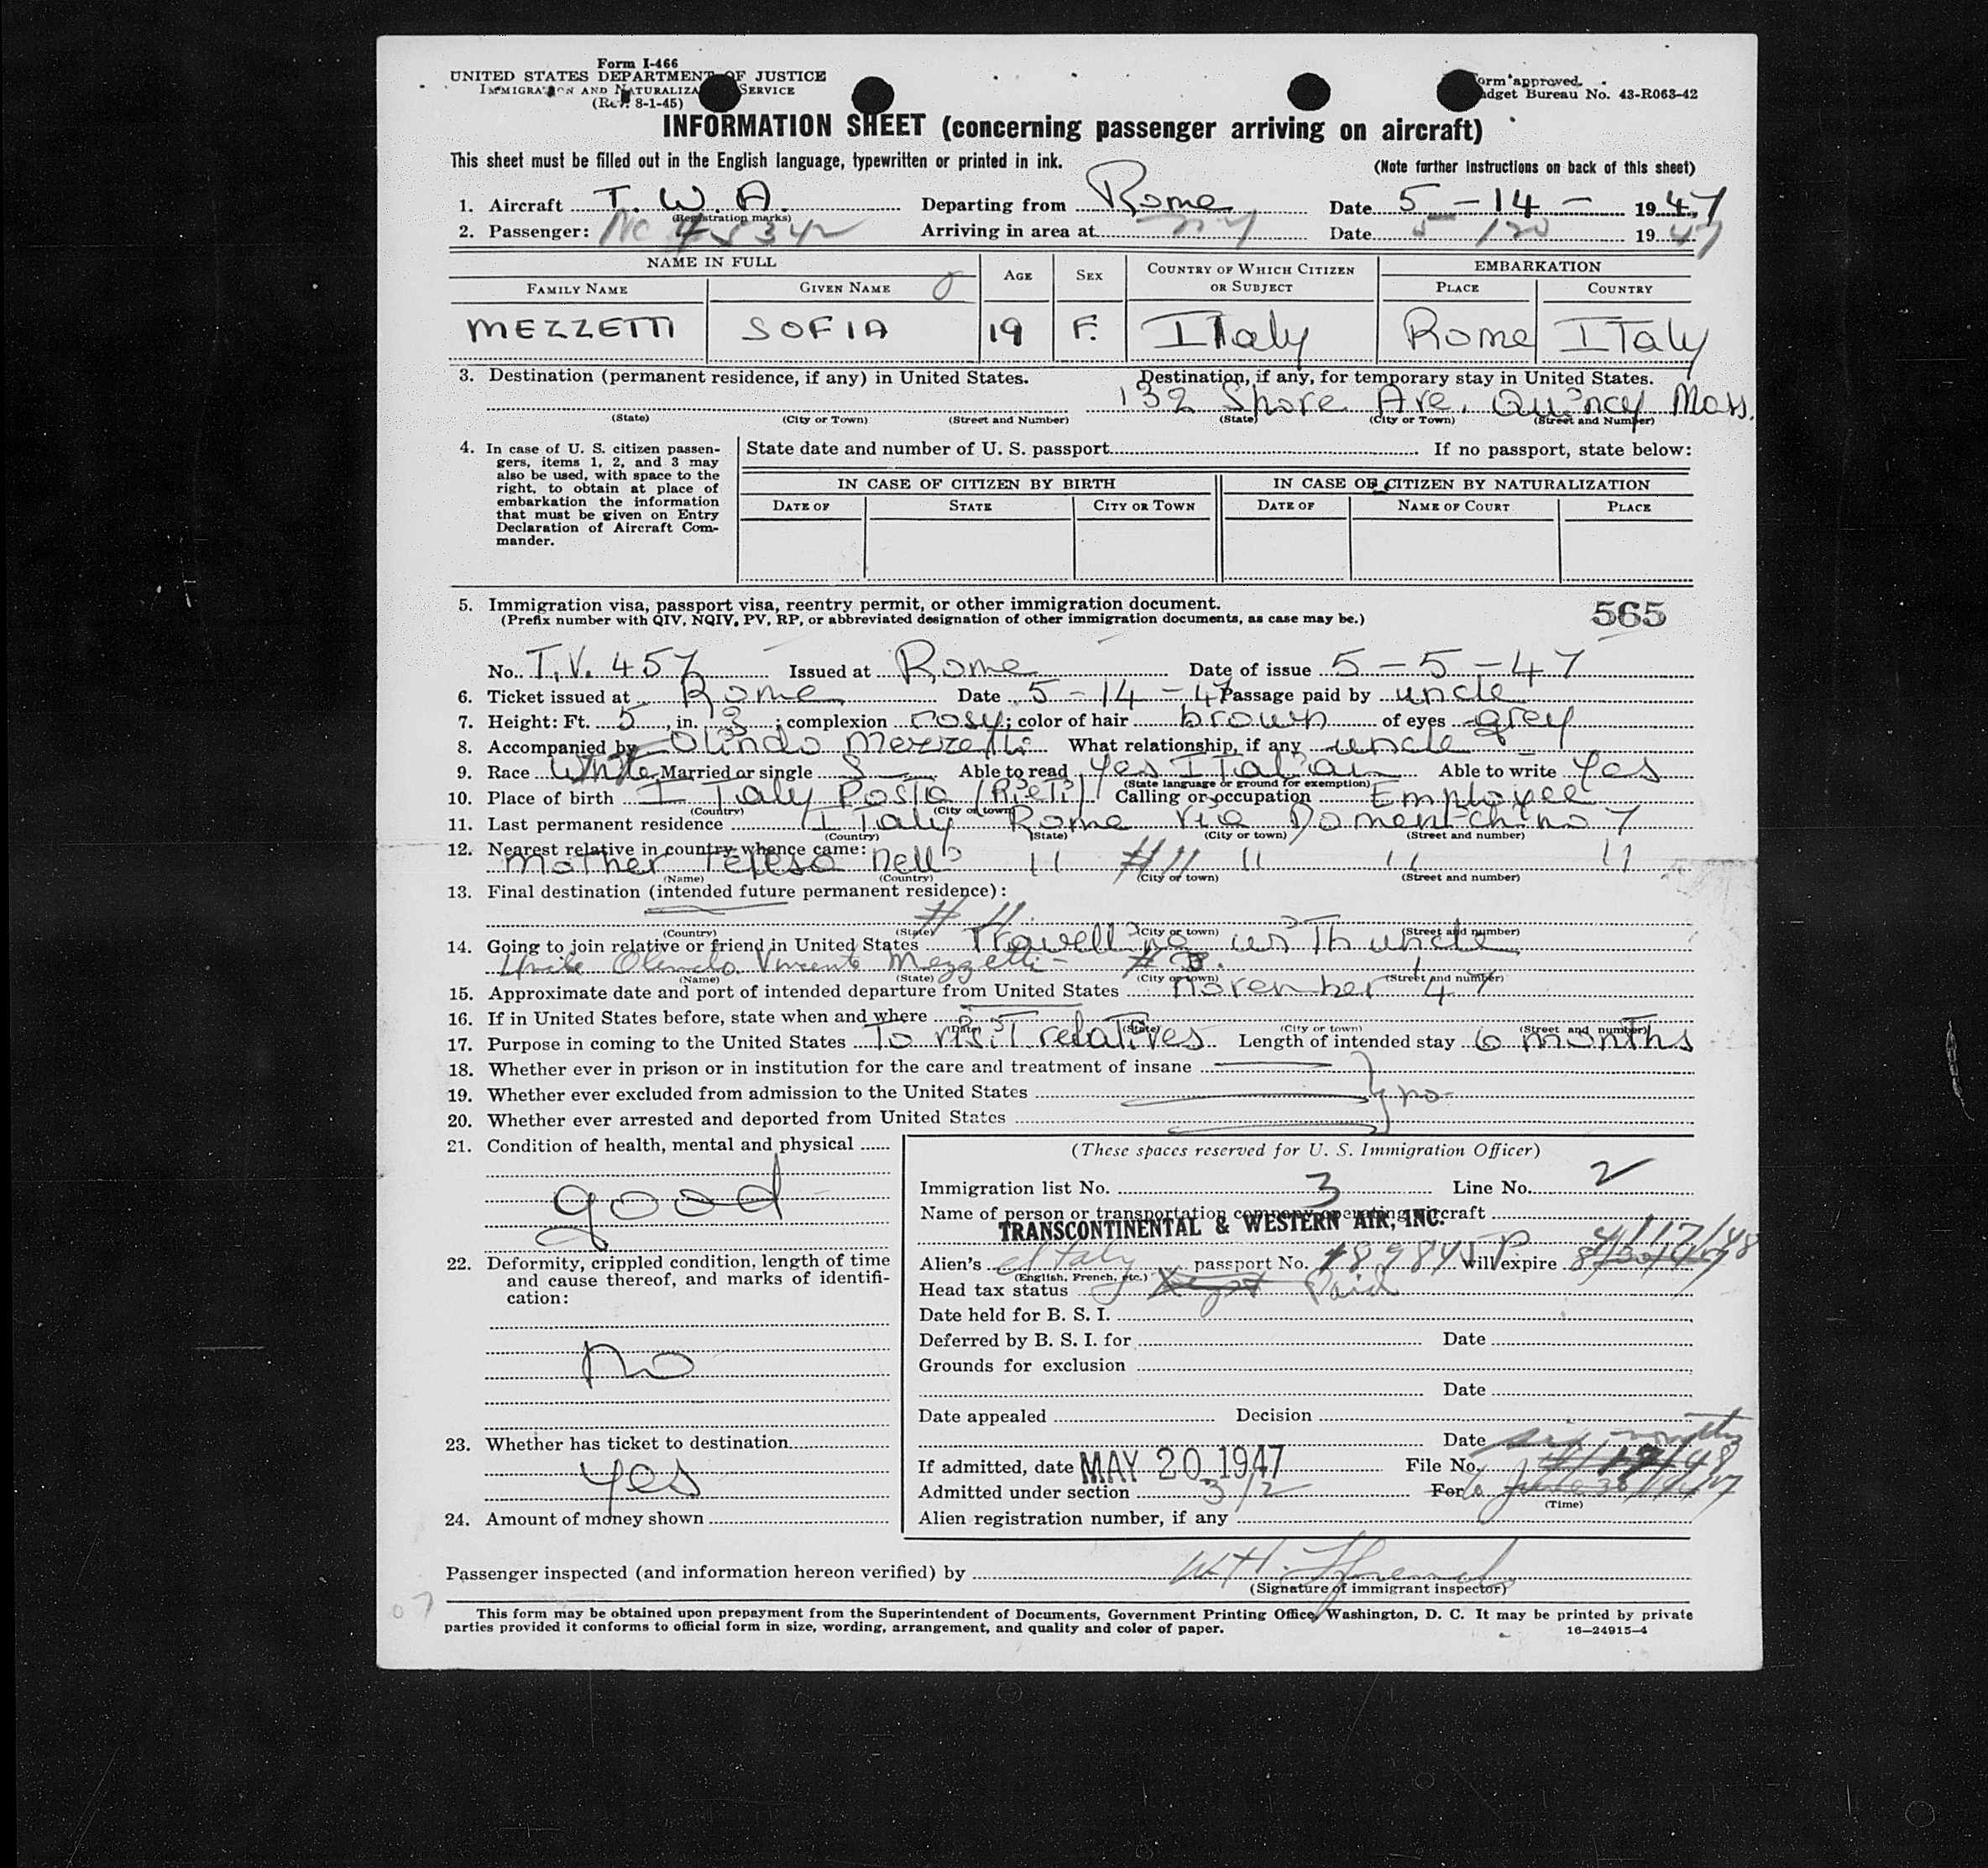 Form I-466
UNITED STATES DEPARTMENT OF JUSTICE
IMMIGRATION AND NATURALIZATION SERVICE
(Rev. 8-1-45)
Form approved.
Budget Bureau No. 43-R063-42
INFORMATION SHEET (concerning passenger arriving on aircraft)
This sheet must be filled out in the English language, typewritten or printed in ink. (Note further instructions on back of this sheet)
1. Aircraft T. W. A. Departing from Rome Date 5-14- 1947
(Registration marks)
2. Passenger: NC 45342 Arriving in area at NY Date 5/20 1947
NAME IN FULL AGE SEX COUNTRY OF WHICH CITIZEN OR SUBJECT EMBARKATION
FAMILY NAME GIVEN NAME PLACE COUNTRY
MEZZETTI SOFIA 19 F. ITaly Rome ITaly
3. Destination (permanent residence, if any) in United States. Destination, if any, for temporary stay in United States.
132 Shore Ave. Quincy Mass.
(State) (City or Town) (Street and Number) (State) (City or Town) (Street and Number)
4. In case of U. S. citizen passengers, items 1, 2, and 3 may also be used, with space to the right, to obtain at place of embarkation the information that must be given on Entry Declaration of Aircraft Commander.
State date and number of U. S. passport If no passport, state below:
IN CASE OF CITIZEN BY BIRTH IN CASE OF CITIZEN BY NATURALIZATION
DATE OF STATE CITY OR TOWN DATE OF NAME OF COURT PLACE
5. Immigration visa, passport visa, reentry permit, or other immigration document. 565
(Prefix number with QIV, NQIV, PV, RP, or abbreviated designation of other immigration documents, as case may be.)
No. T.V. 457 Issued at Rome Date of issue 5-5-47
6. Ticket issued at Rome Date 5-14-47 Passage paid by uncle
7. Height: Ft. 5, in. 3; complexion rosy; color of hair brown of eyes grey
8. Accompanied by Olindo Mezzetti What relationship, if any uncle
9. Race White Married or single S Able to read yes ITalian Able to write yes
(State language or ground for exemption)
10. Place of birth ITaly Posta (RieTi) Calling or occupation Employee
(Country) (City or town)
11. Last permanent residence ITaly Rome Via Domenichino 7
(Country) (State) (City or town) (Street and number)
12. Nearest relative in country whence came:
mother Teresa Nelli 11 #11 11 11 11
(Name) (Country) (City or town) (Street and number)
13. Final destination (intended future permanent residence):
# 11
(Country) (State) (City or town) (Street and number)
14. Going to join relative or friend in United States Travelling wiTh uncle
Uncle Olindo Vincente Mezzetti - # 3.
(Name) (State) (City or town) (Street and number)
15. Approximate date and port of intended departure from United States november 47
16. If in United States before, state when and where
(Date) (State) (City or town) (Street and number)
17. Purpose in coming to the United States To visiT relaTives Length of intended stay 6 monThs
18. Whether ever in prison or in institution for the care and treatment of insane
19. Whether ever excluded from admission to the United States no
20. Whether ever arrested and deported from United States
21. Condition of health, mental and physical
good
22. Deformity, crippled condition, length of time and cause thereof, and marks of identification:
no
23. Whether has ticket to destination
yes
24. Amount of money shown
(These spaces reserved for U. S. Immigration Officer)
Immigration list No. 3 Line No. 2
Name of person or transportation company operating aircraft
TRANSCONTINENTAL & WESTERN AIR, INC.
4/17/48
Alien's Italy passport No. 189845 P Will expire 8/30/47
(English, French, etc.)
Head tax status Paid
Date held for B. S. I.
Deferred by B. S. I. for Date
Grounds for exclusion
Date
Date appealed Decision
Date six months
If admitted, date MAY 20 1947 File No.
Admitted under section 3/2 For to June 30/47
(Time)
Alien registration number, if any
Passenger inspected (and information hereon verified) by
(Signature of immigrant inspector)
07
This form may be obtained upon prepayment from the Superintendent of Documents, Government Printing Office, Washington, D. C. It may be printed by private
parties provided it conforms to official form in size, wording, arrangement, and quality and color of paper. 16—24915-4